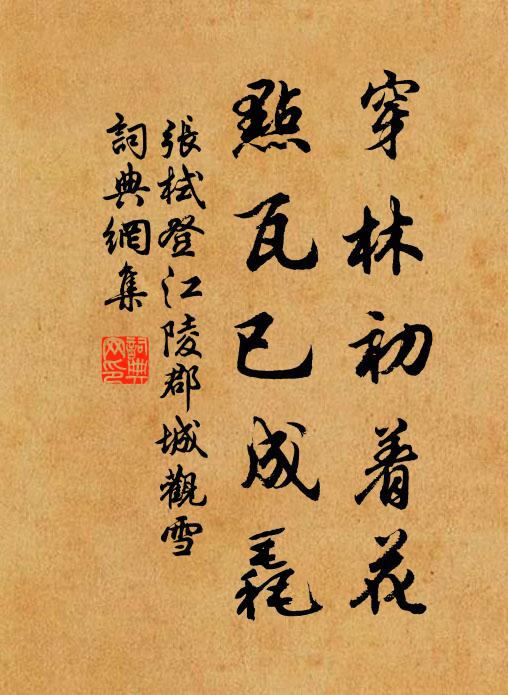 穿林初着花
點瓦已成毳
張栻登江陵郡城觀雪
詞典網集
詞典網印